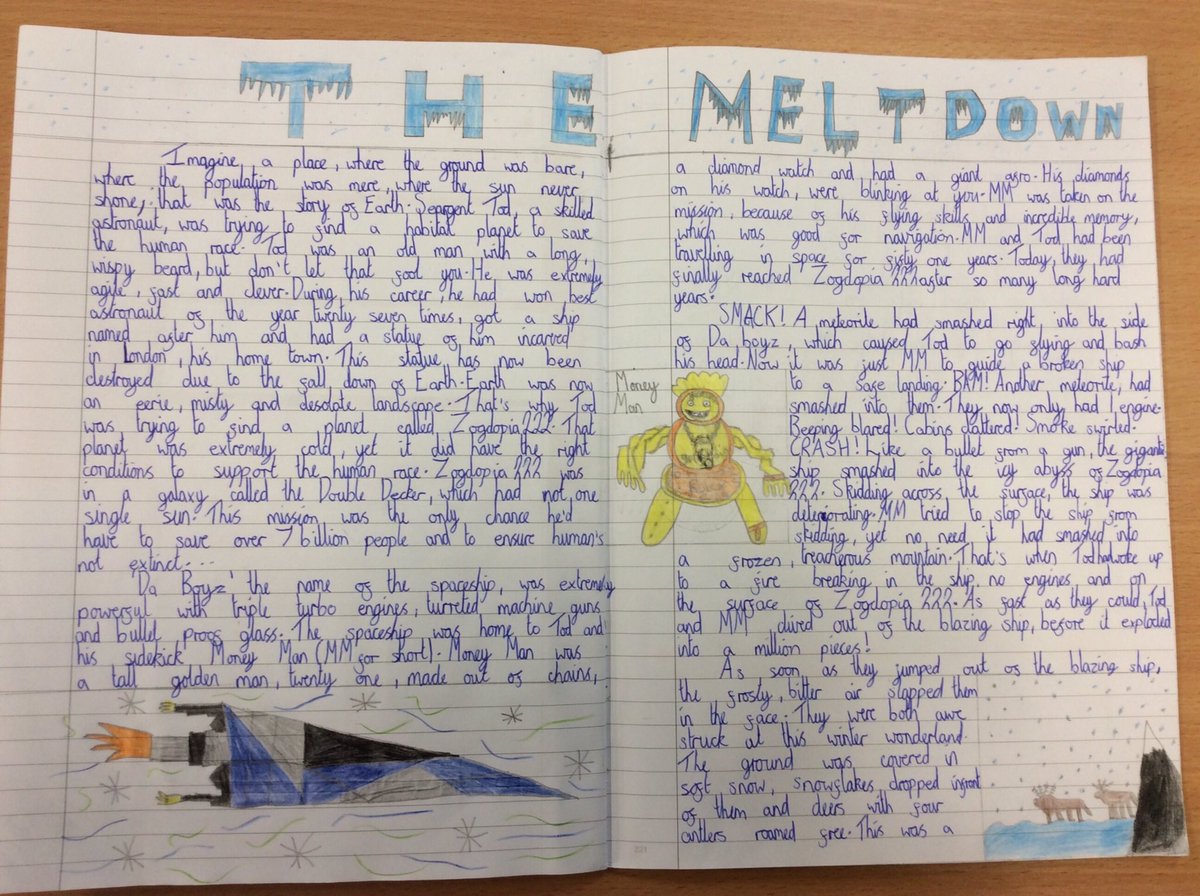 THE MELTDOWN
Imagine, a place, where the ground was bare,
where the population was mere, where the sun never
shone, that was the story of Earth. Seargent Tod, a skilled
astronaut, was trying to find a habitat planet to save
the human race. Tod was an old man with a long,
wispy beard, but don't let that fool you. He, was extremely
agile, fast and clever. During, his career, he had won best
astronaut of the year twenty seven times, got a ship
named after him and had a statue of him incarved
in London, his home town. This statue, has now been
destroyed due to the fall down of Earth. Earth was now
an eerie, misty and desolate landscape. That's why Tod
was trying to find a planet called Zogdopia 222. That
planet was extremely cold, yet it did have the right
conditions to support the human race. Zogdopia 222 was
in a galaxy called the Double Decker, which had not one
single sun. This mission was the only chance he'd
have to save over 7 billion people and to ensure human's
not extinct....
'Da Boyz' the name of the spaceship, was extremely
powerful with triple turbo engines, turreted machine guns
and bullet proof glass. The spaceship was home to Tod and
his sidekick Money Man (MM for short). Money Man was
a tall golden man, twenty one, made out of chains,
a diamond watch and had a giant afro. His diamonds
on his watch, were blinking at you. MM was taken on the
mission, because of his flying skills and incredible memory,
which was good for navigation. MM and Tod, had been
travelling in space for fifty one years. Today, they had
finally reached Zogdopia 222 after so many long hard
years.
SMACK! A meteorite had smashed right into the side
of Da boyz, which caused Tod to go flying and bash
his head. Now it was just MM to guide a broken ship
Money
Man
to a safe landing. BAM! Another meteorite, had
smashed into them. They now only had 1 engine.
Beeping blared! Cabins clattered! Smoke swirled.
CRASH! Like a bullet from a gun, the gigantic
ship smashed into the icy abyss of Zogdopia
222. Skidding across the surface, the ship was
deteriorating. MM tried to stop the ship from
skidding, yet no need it had smashed into
a frozen, treacherous mountain. That's when Tod had woke up
to a fire breaking in the ship, no engines and on
the surface of Zogdopia 222. As fast as they could, Tod
and MM dived out of the blazing ship, before it exploded
into a million pieces!
As soon as they jumped out of the blazing ship,
the frosty, bitter air slapped them
in the face. They were both awe
struck at this winter wonderland.
The ground was covered in
soft snow, snowflakes dropped infront
of them and deers with four
antlers roamed free. This was a